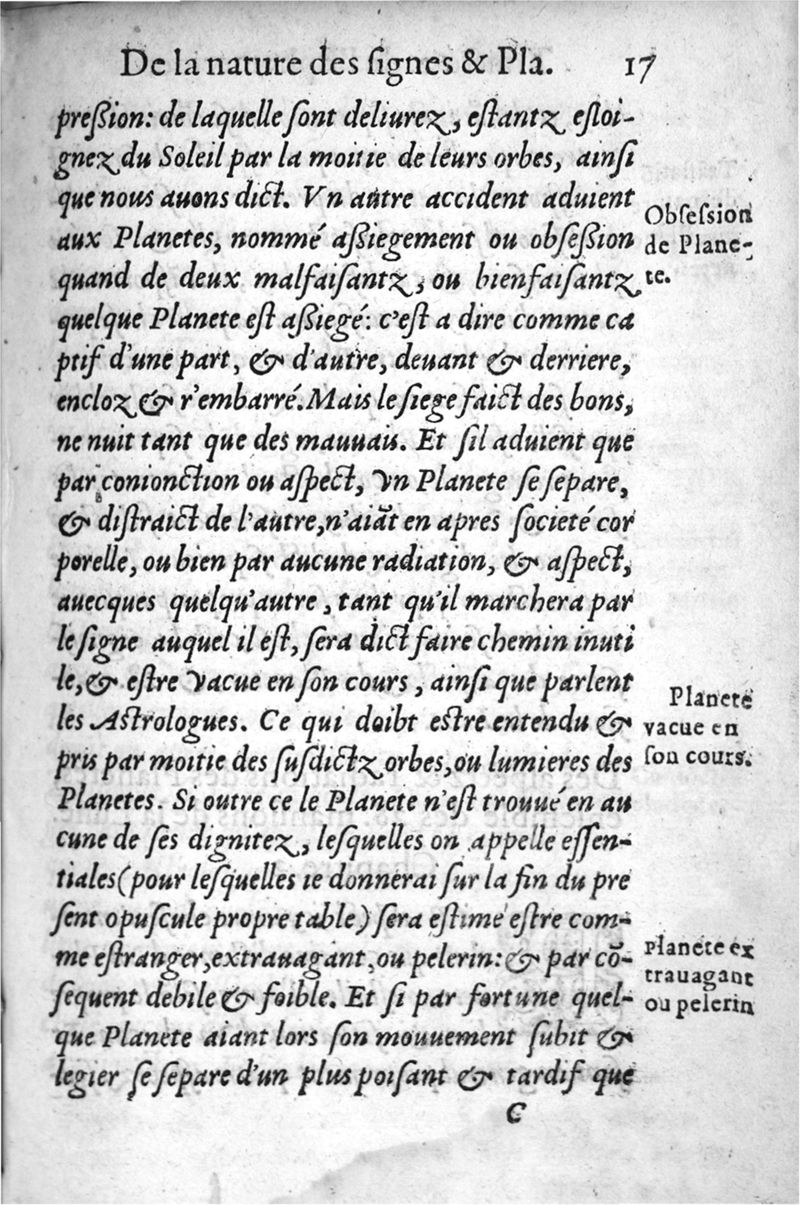 De la nature des ſignes & Pla. 17
preßion: de laquelle ſont deliurez, eſtantz eſloi-
gnez du Soleil par la moitie de leurs orbes, ainſi
que nous auons dict. Vn autre accident aduient
aux Planetes, nommé aßiegement ou obſeßion
quand de deux malfaiſantz, ou bienfaiſantz
quelque Planete eſt aßiegé: c'eſt a dire comme ca
ptif d'une part, & d'autre, deuant & derriere,
encloz & r'embarré. Mais le ſiege faict des bons,
ne nuit tant que des mauuais. Et ſil aduient que
par conionction ou aſpect, vn Planete ſe ſepare,
& diſtraict de l'autre, n'aiãt en apres ſocieté cor
porelle, ou bien par aucune radiation, & aſpect,
auecques quelqu'autre, tant qu'il marchera par
le ſigne auquel il eſt, ſera dict faire chemin inuti
le, & eſtre vacue en ſon cours, ainſi que parlent
les Aſtrologues. Ce qui doibt eſtre entendu &
pris par moitie des ſuſdictz orbes, ou lumieres des
Planetes. Si outre ce le Planete n'eſt trouué en au
cune de ſes dignitez, leſquelles on appelle eſſen-
tiales (pour leſquelles ie donnerai ſur la fin du pre
ſent opuſcule propre table) ſera eſtimé eſtre com-
me eſtranger, extrauagant, ou pelerin: & par cõ-
ſequent debile & foible. Et ſi par fortune quel-
que Planete aiant lors ſon mouuement ſubit &
legier ſe ſepare d'un plus poiſant & tardif que
C
Obſeſsion
de Plane-
te.
Planete
vacue en
ſon cours.
Planete ex
trauagant
ou pelerin